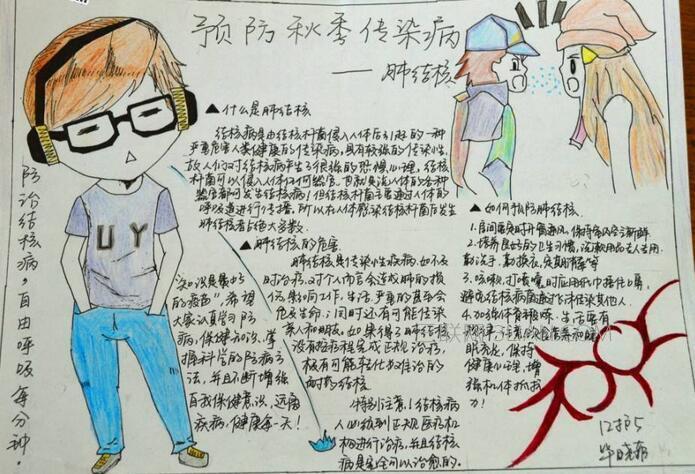 预防秋季传染病
——肺结核
▲什么是肺结核
结核病是由结核杆菌侵入人体后引起的一种
严重危害人类健康的传染病,具有较强的传染性,
故人们对于结核病产生了很强的恐惧心理,结核
杆菌可以侵入人体任何器官,也就是说人体的各种
器官都可发生结核病!但结核杆菌主要通过人体的
呼吸道进行传播,所以在人体感染结核杆菌后发生
肺结核者占绝大多数.
▲肺结核的危害
肺结核具传染性疾病,如不及
时治疗,对个人而言会造成肺的损
伤,影响工作,生活,严重的甚至会
危及生命;同时还有可能传染
亲人和朋友,如果得了肺结核
没有按疗程完成正规治疗,
极有可能转化为难治的
耐药结核
特别注意!结核病
人必须到正规医疗机
构进行治疗,并且结核
病是完全可以治愈的.
▲如何预防肺结核
1.房间要定时开窗通风,保持室内空气新鲜
2.培养良好的卫生习惯,洗漱用品专人专用,
勤洗手,勤换衣,定期消毒等
3.咳嗽,打喷嚏时应用纸巾捂住口鼻,
避免结核病菌通过飞沫传染其他人.
4.加强体育锻炼,生活要有
规律,注意饮食营养和睡
眠充足,保持
健康心理,增
强机体抵抗
力!
UY
防治结核病,自由呼吸每分钟.
"知识是最的
的疫苗",希望
大家认真学习防
病,保健知识,掌
握科学的防病方
法,并且不断增强
自我保健意识,远离
疾病,健康每一天!
12护5
毕晓